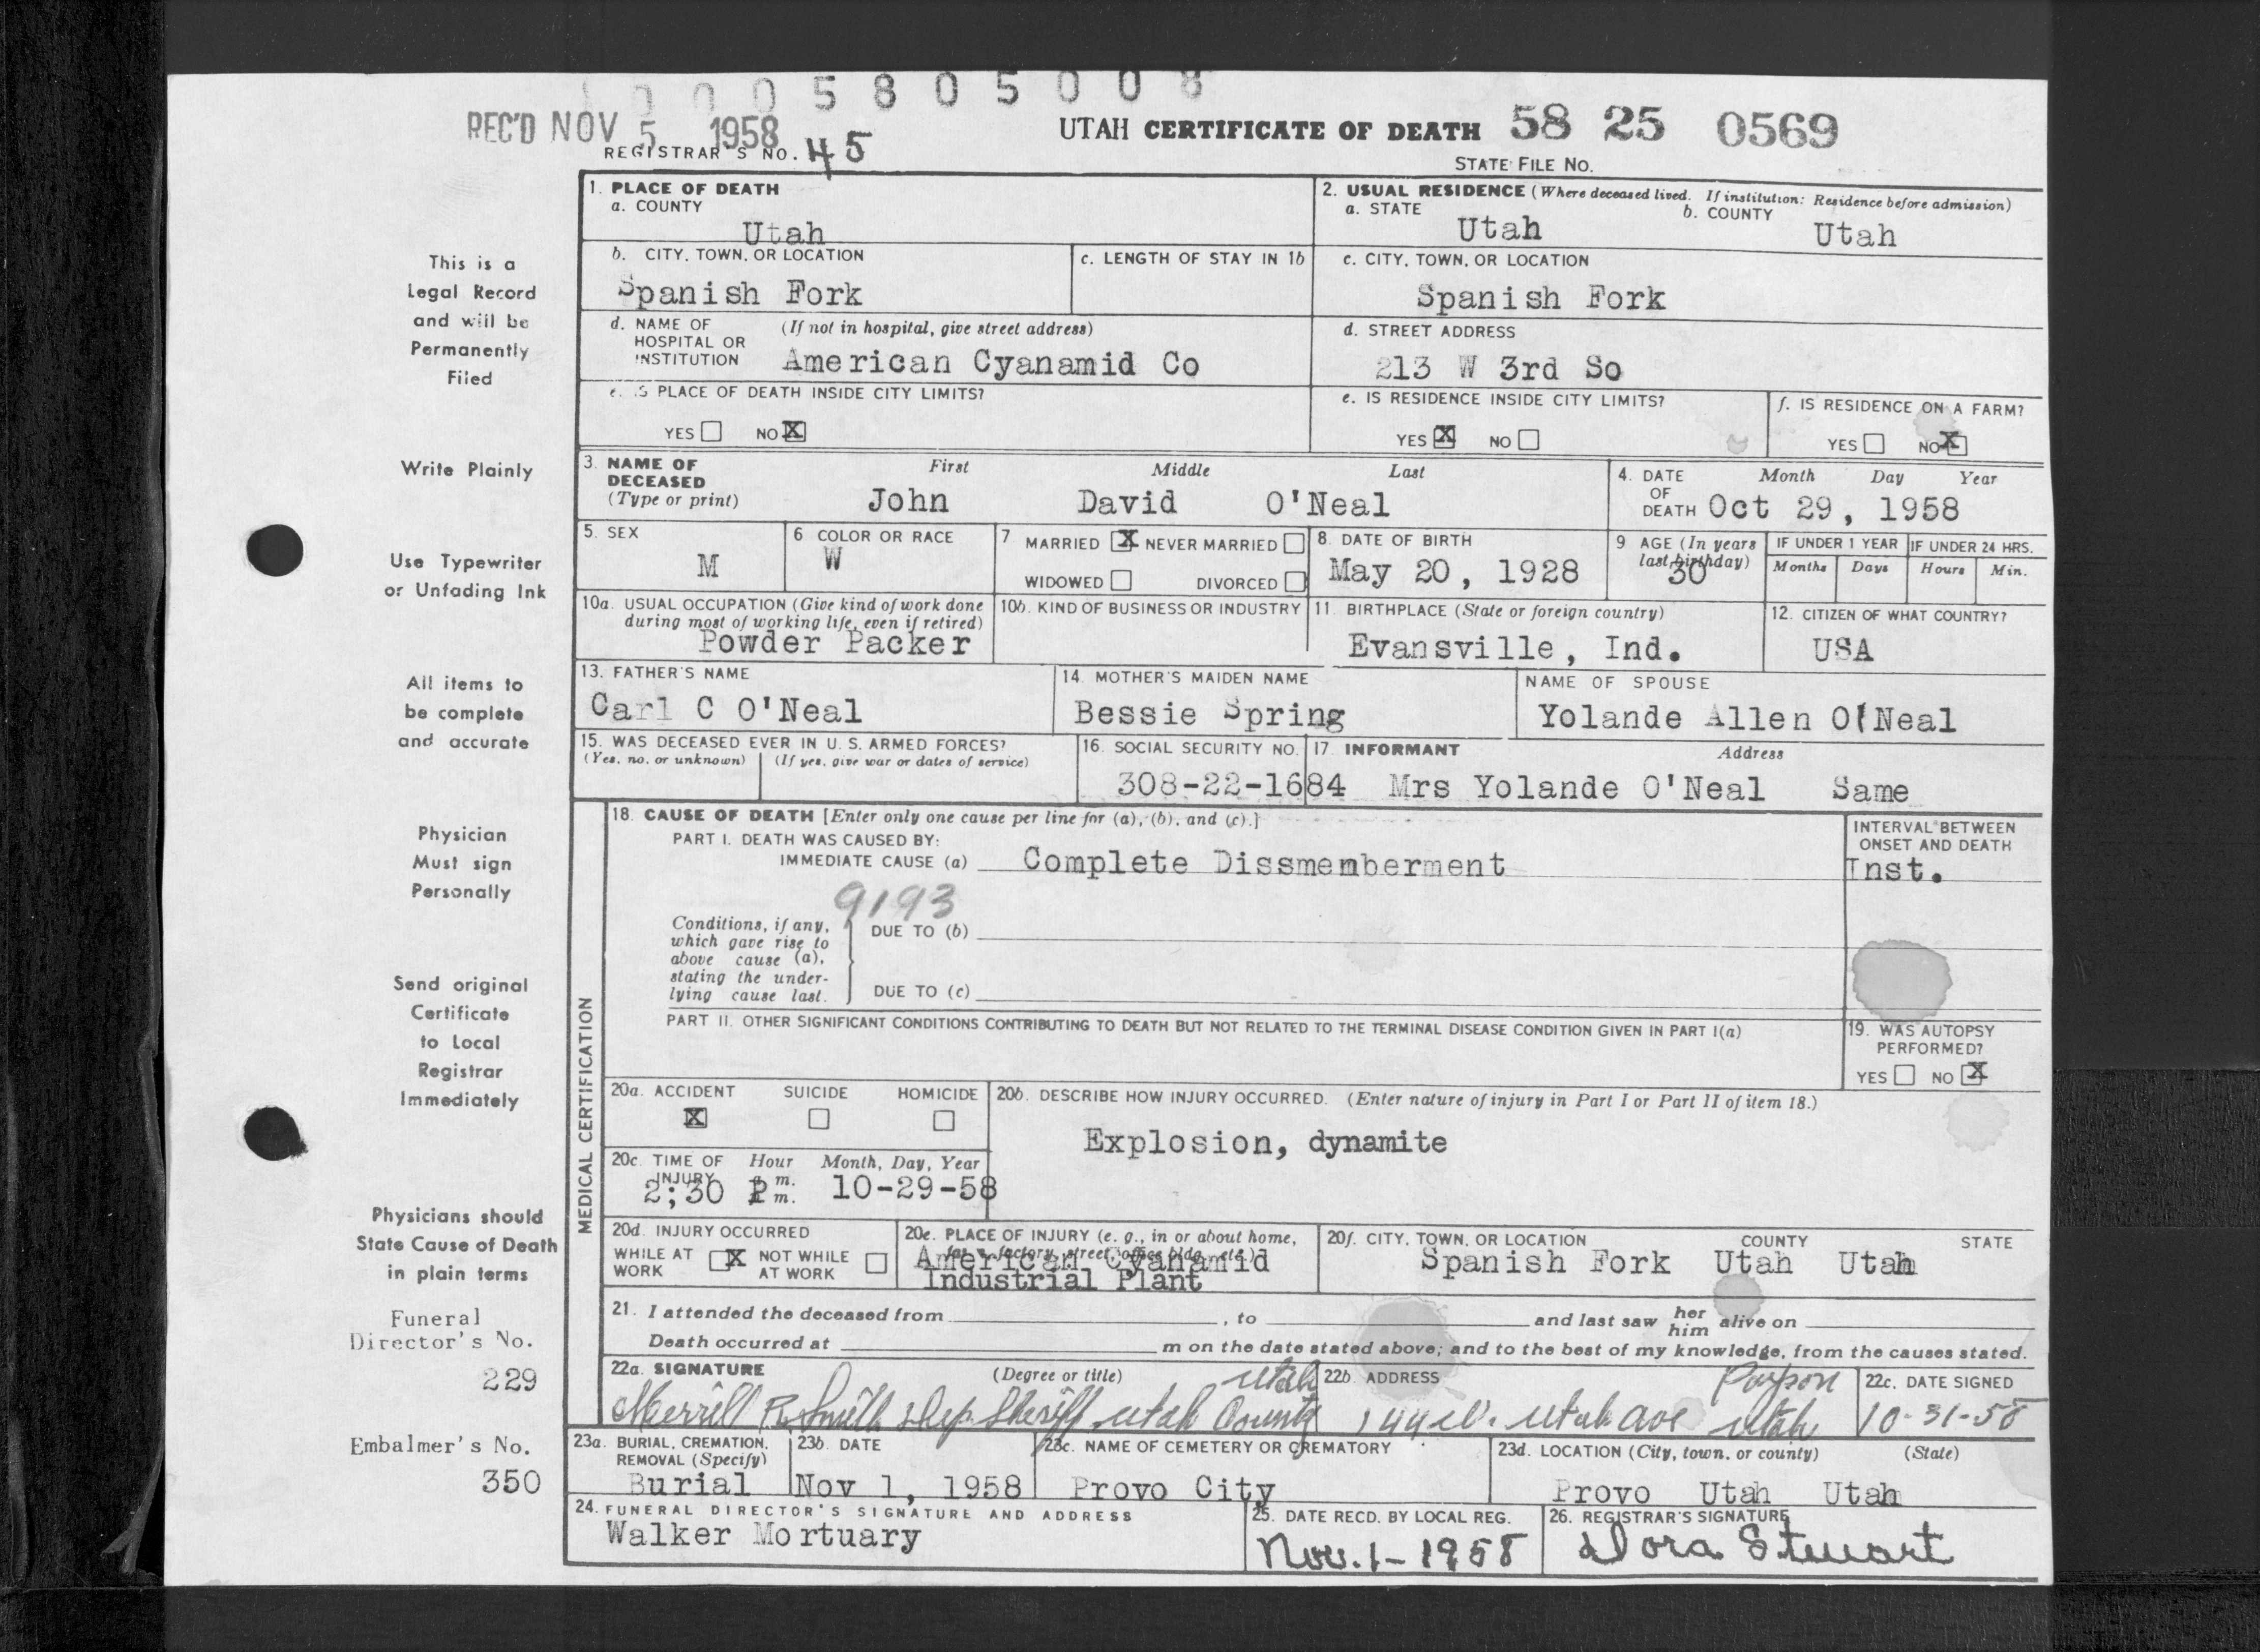 0005805008
REC'D NOV 5 1958
REGISTRAR'S NO. 45
UTAH CERTIFICATE OF DEATH 58 25 0569
STATE FILE NO.
This is a
Legal Record
and will be
Permanently
Filed
Write Plainly
Use Typewriter
or Unfading Ink
All items to
be complete
and accurate
Physician
Must sign
Personally
Send original
Certificate
to Local
Registrar
Immediately
Physicians should
State Cause of Death
in plain terms
Funeral
Director's No.
229
Embalmer's No.
350
1. PLACE OF DEATH
a. COUNTY
Utah
2. USUAL RESIDENCE (Where deceased lived. If institution: Residence before admission)
a. STATE b. COUNTY
Utah Utah
b. CITY, TOWN, OR LOCATION
Spanish Fork
c. LENGTH OF STAY IN 1b
c. CITY, TOWN, OR LOCATION
Spanish Fork
d. NAME OF (If not in hospital, give street address)
HOSPITAL OR
INSTITUTION American Cyanamid Co
d. STREET ADDRESS
213 W 3rd So
e. IS PLACE OF DEATH INSIDE CITY LIMITS?
YES NO X
e. IS RESIDENCE INSIDE CITY LIMITS?
YES X NO
f. IS RESIDENCE ON A FARM?
YES NO X
3. NAME OF First Middle Last
DECEASED
(Type or print) John David O'Neal
4. DATE Month Day Year
OF
DEATH Oct 29, 1958
5. SEX
M
6 COLOR OR RACE
W
7 MARRIED X NEVER MARRIED
WIDOWED DIVORCED
8. DATE OF BIRTH
May 20, 1928
9 AGE (In years
last birthday)
30
IF UNDER 1 YEAR IF UNDER 24 HRS.
Months Days Hours Min.
10a. USUAL OCCUPATION (Give kind of work done
during most of working life, even if retired)
Powder Packer
10b. KIND OF BUSINESS OR INDUSTRY
11. BIRTHPLACE (State or foreign country)
Evansville, Ind.
12. CITIZEN OF WHAT COUNTRY?
USA
13. FATHER'S NAME
Carl C O'Neal
14. MOTHER'S MAIDEN NAME
Bessie Spring
NAME OF SPOUSE
Yolande Allen O'Neal
15. WAS DECEASED EVER IN U. S. ARMED FORCES?
(Yes, no, or unknown) (If yes, give war or dates of service)
16. SOCIAL SECURITY NO.
308-22-1684
17. INFORMANT Address
Mrs Yolande O'Neal Same
MEDICAL CERTIFICATION
18. CAUSE OF DEATH [Enter only one cause per line for (a), (b), and (c).]
PART I. DEATH WAS CAUSED BY:
IMMEDIATE CAUSE (a) Complete Dissmemberment
INTERVAL BETWEEN
ONSET AND DEATH
Inst.
9193
Conditions, if any,
which gave rise to
above cause (a),
stating the under-
lying cause last.
DUE TO (b)
DUE TO (c)
PART II. OTHER SIGNIFICANT CONDITIONS CONTRIBUTING TO DEATH BUT NOT RELATED TO THE TERMINAL DISEASE CONDITION GIVEN IN PART I(a)
19. WAS AUTOPSY
PERFORMED?
YES NO X
20a. ACCIDENT SUICIDE HOMICIDE
X
20b. DESCRIBE HOW INJURY OCCURRED. (Enter nature of injury in Part I or Part II of item 18.)
Explosion, dynamite
20c. TIME OF Hour Month, Day, Year
INJURY
2;30 P m. 10-29-58
m.
20d. INJURY OCCURRED
WHILE AT X NOT WHILE
WORK AT WORK
20e. PLACE OF INJURY (e. g., in or about home,
farm, factory, street, office bldg., etc.)
American Cyanamid
Industrial Plant
20f. CITY, TOWN, OR LOCATION COUNTY STATE
Spanish Fork Utah Utah
21. I attended the deceased from , to and last saw her him alive on
Death occurred at m on the date stated above; and to the best of my knowledge, from the causes stated.
22a. SIGNATURE (Degree or title)
Merrill R. Smith Dep. Sheriff Utah County Utah
22b. ADDRESS
Utah ave Payson Utah
22c. DATE SIGNED
10-31-58
23a. BURIAL, CREMATION,
REMOVAL (Specify)
Burial
23b. DATE
Nov 1, 1958
23c. NAME OF CEMETERY OR CREMATORY
Provo City
23d. LOCATION (City, town, or county) (State)
Provo Utah Utah
24. FUNERAL DIRECTOR'S SIGNATURE AND ADDRESS
Walker Mortuary
25. DATE RECD. BY LOCAL REG.
Nov. 1-1958
26. REGISTRAR'S SIGNATURE
Dora Stewart